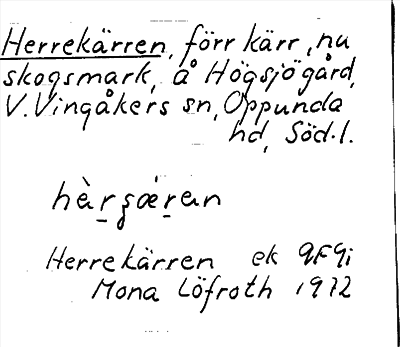 Herrekärren, förr kärr, nu
skogsmark, å Högsjö gård,
V. Vingåkers sn, Oppunda
hd, Söd.l.
Herrekärren ek 9F9i
Mona Löfroth 1972